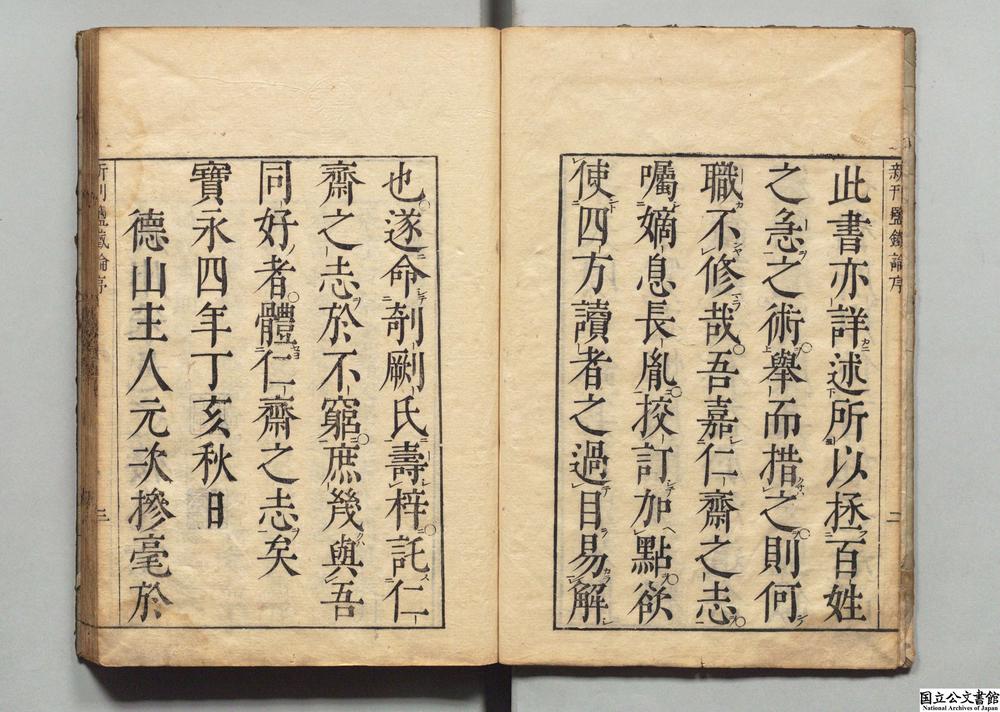 此書亦詳述所以拯百姓
之急之術舉而措之則何
職不修哉吾嘉仁齋之志
囑嫡息長胤挍訂加點欲
使四方讀者之過目易解
也遂命剞劂氏壽梓託仁
齋之志於不窮庶幾與吾
同好者體仁齋之志矣
寶永四年丁亥秋日
德山主人元次摻毫於
国立公文書館
National Archives of Japan